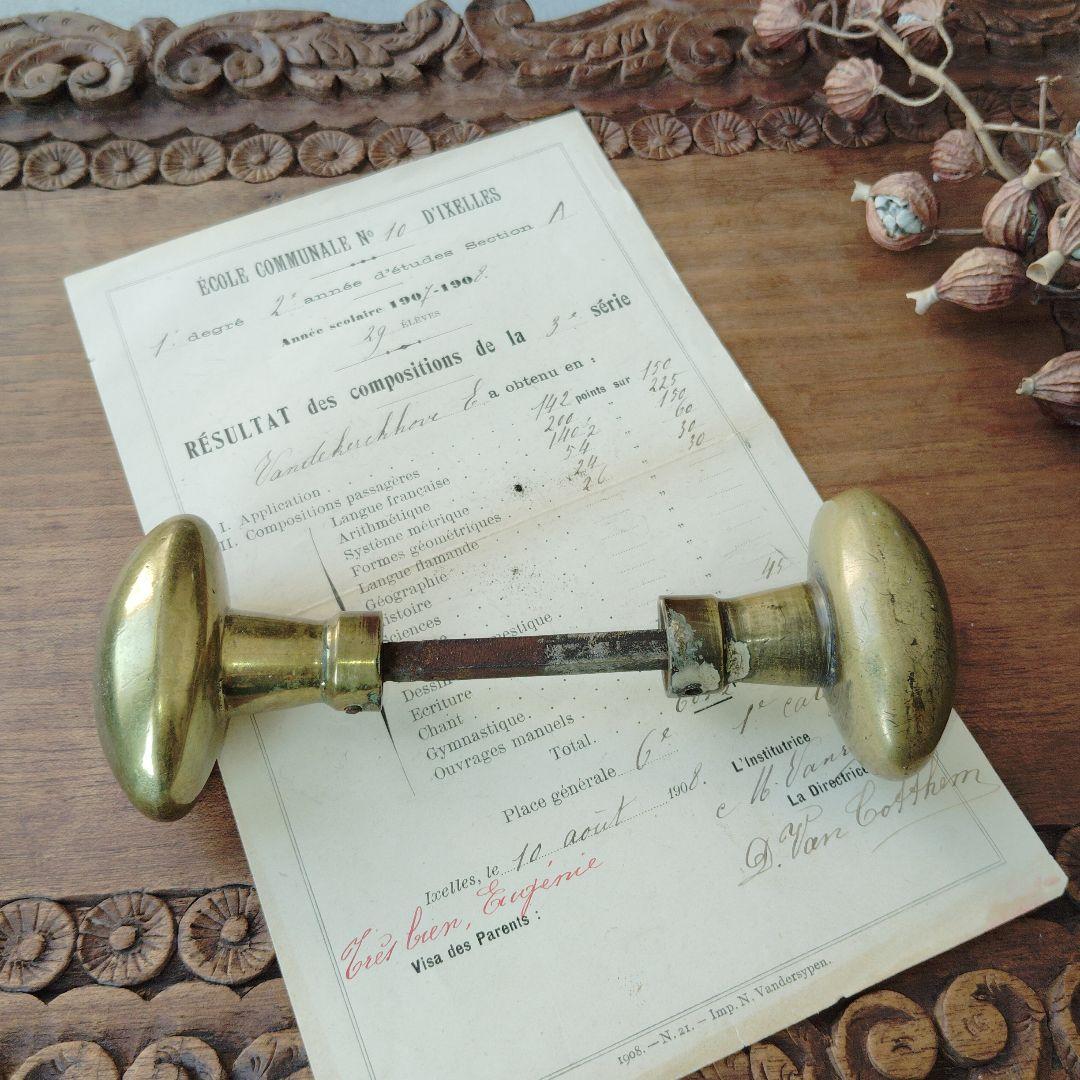 ÉCOLE COMMUNALE N° 10 D'IXELLES
1er degré 2e année d'études Section A
Année scolaire 1907-1908.
29 ÉLÈVES
RÉSULTAT des compositions de la 3e série
Vandekerckhove E a obtenu en :
I. Application . 142 points sur 150
II. Compositions passagères 200 " 225
Langue française 140 1/2 " 150
Arithmétique 54 " 60
Système métrique 24 " 30
Formes géométriques 26 30
Langue flamande "
Géographie "
Histoire "
Sciences "
mestique 45
Dessin
Ecriture
Chant
Gymnastique
Ouvrages manuels
Total.
Place générale 6e 1e
Ixelles, le 10 août 1908.
L'Institutrice
M. Van
La Directrice
D. Van Cotthem
Très bien, Eugénie
Visa des Parents :
1908. — N. 21. — Imp. N. Vandersypen.